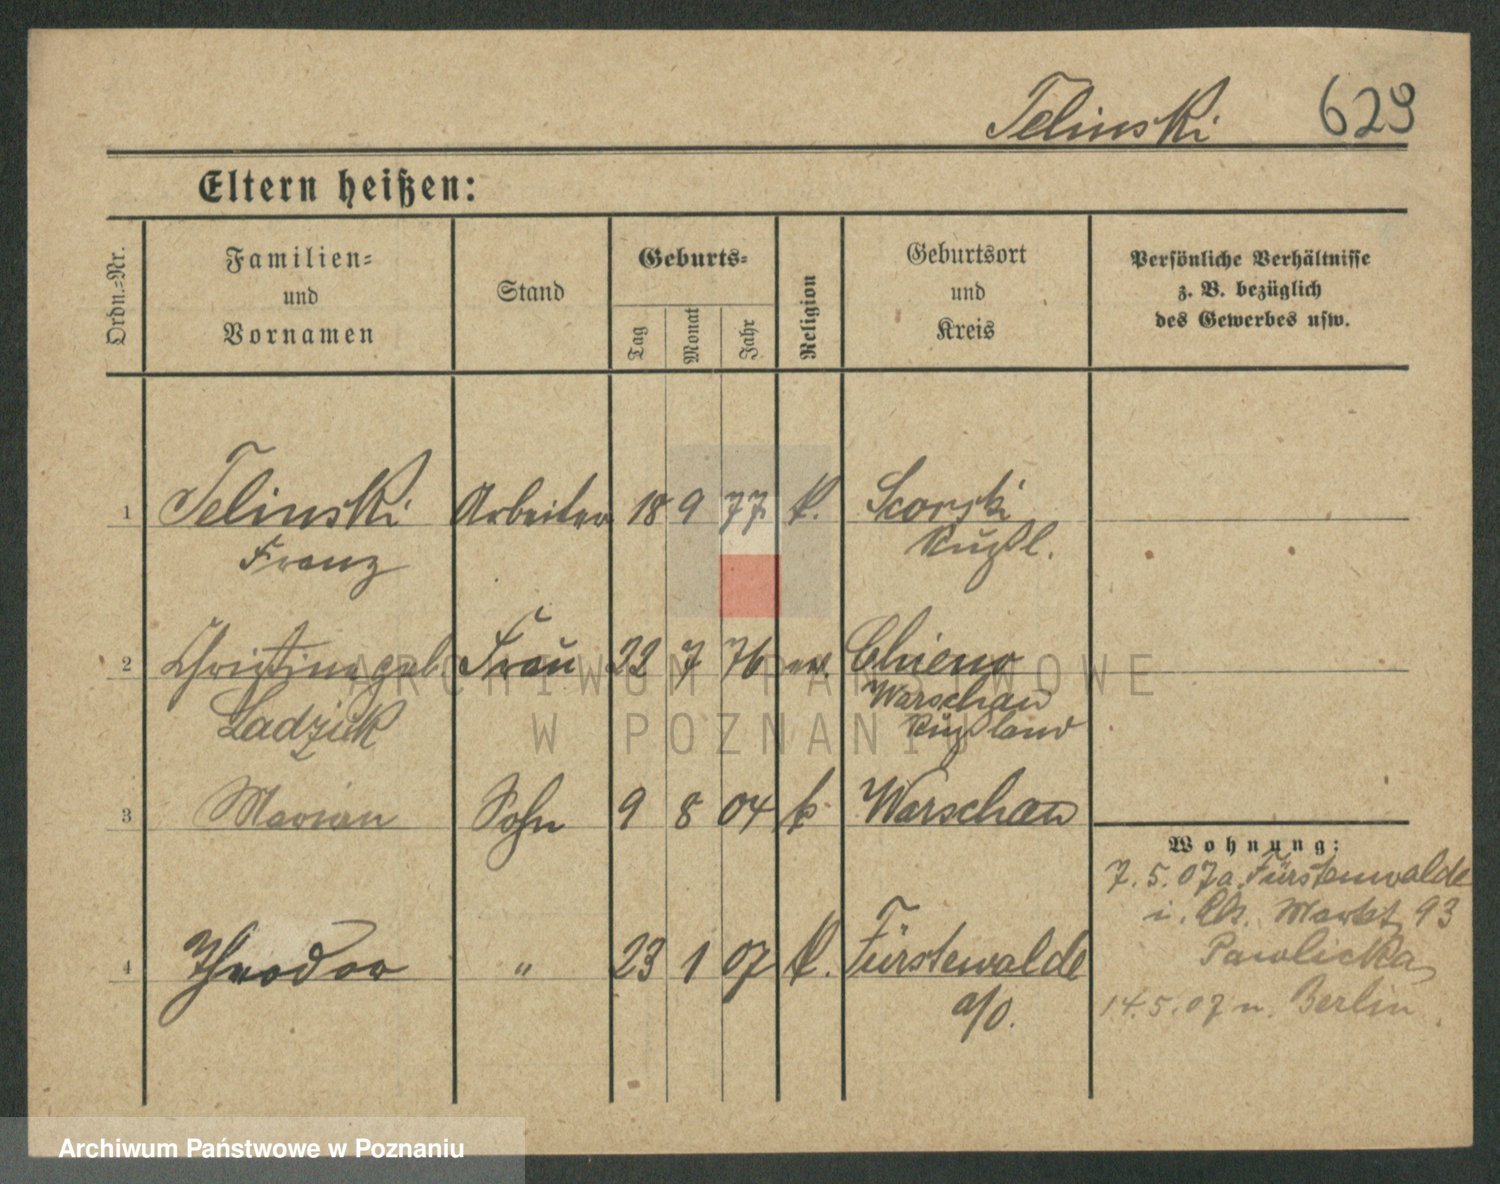 Telinski 629
Eltern heißen:
Ordn.-Nr.
Familien-
und
Vornamen
Stand
Geburts-
Tag
Monat
Jahr
Religion
Geburtsort
und
Kreis
Persönliche Verhältnisse
z. B. bezüglich
des Gewerbes usw.
1 Telinski Arbeiter 18 9 77 k. Skorski
Franz Rußl.
2 Christine geb. Frau 22 7 76 ev. Chieno
Ladziuk Warschau
Rußland
3 Marian Sohn 9 8 04 k. Warschau
Wohnung:
7. 5. 07 a. Fürstenwalde
i. Markt 93
Pawlicka
4 Theodor " 23 1 07 k. Fürstewalde
a/O.
14. 5. 07 n. Berlin
ARCHIWUM PAŃSTWOWE
W POZNANIU
Archiwum Państwowe w Poznaniu